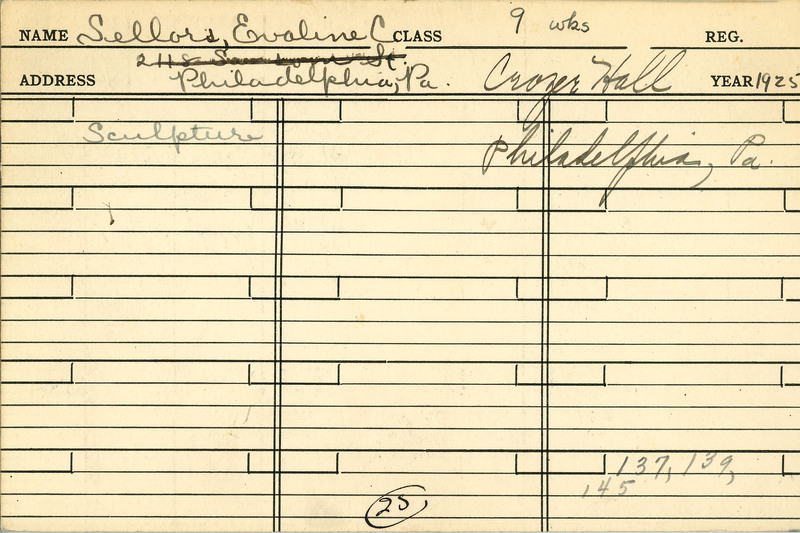 NAME Sellors, Evaline C CLASS 9 wks REG.
2118 St.
ADDRESS Philadelphia, Pa. Crozer Hall YEAR 1925
Sculpture
Philadelphia, Pa.
137, 139,
145
25